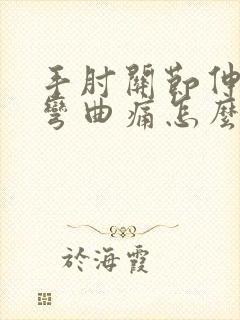 手肘關節伸
彎曲痛怎麼
於海霞